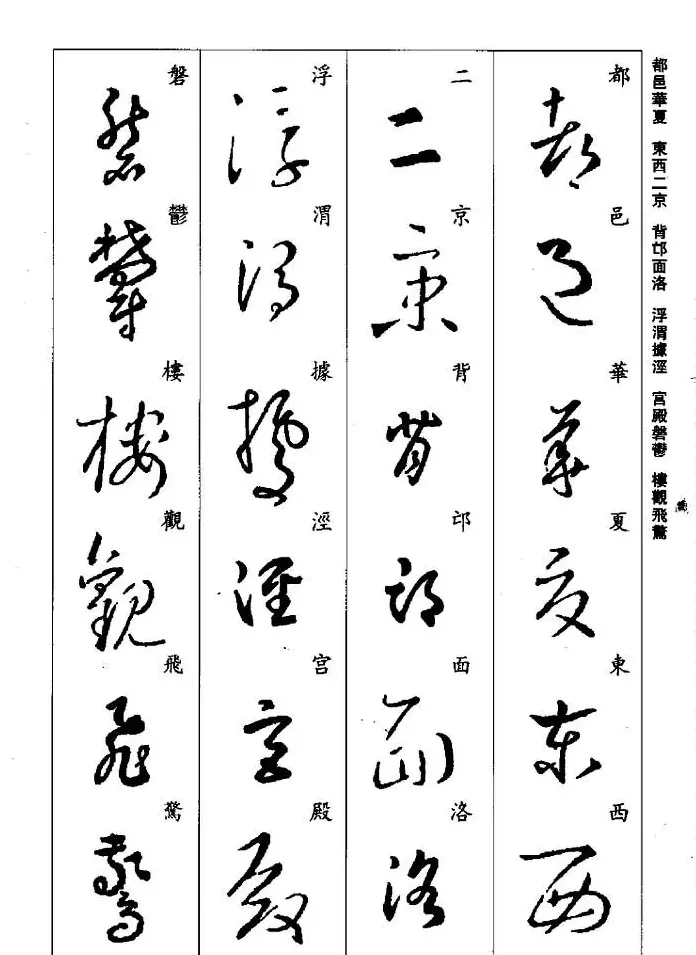 都邑華夏 東西二京 背邙面洛 浮渭據涇 宮殿磐鬱 樓觀飛驚
都
邑
華
夏
東
西
二
京
背
邙
面
洛
浮
渭
據
涇
宮
殿
磐
鬱
樓
觀
飛
驚